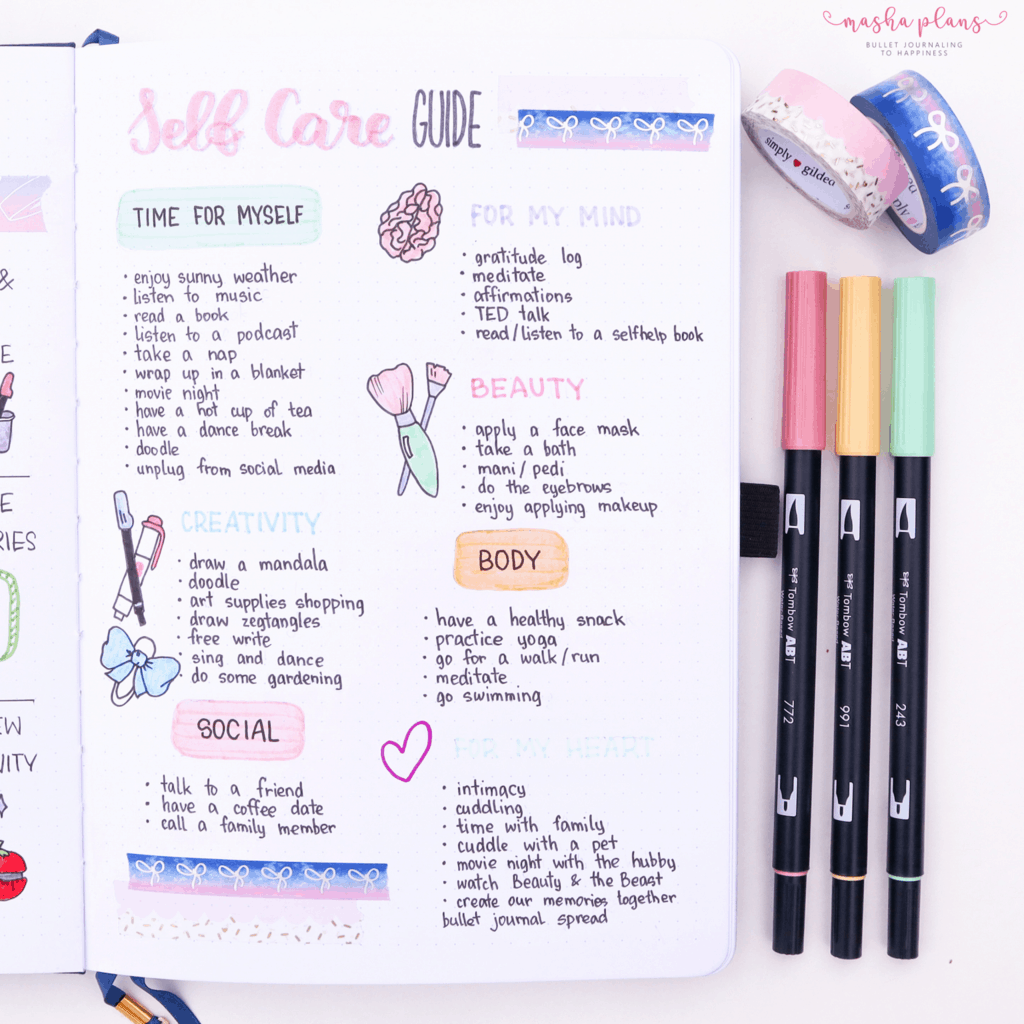 masha plans
BULLET JOURNALING
TO HAPPINESS
Self Care GUIDE
TIME FOR MYSELF
· enjoy sunny weather
· listen to music
· read a book
· listen to a podcast
· take a nap
· wrap up in a blanket
· movie night
· have a hot cup of tea
· have a dance break
· doodle
· unplug from social media
CREATIVITY
· draw a mandala
· doodle
· art supplies shopping
· draw zegtangles
· free write
· sing and dance
· do some gardening
SOCIAL
· talk to a friend
· have a coffee date
· call a family member
FOR MY MIND
· gratitude log
· meditate
· affirmations
· TED talk
· read/listen to a selfhelp book
BEAUTY
· apply a face mask
· take a bath
· mani/pedi
· do the eyebrows
· enjoy applying makeup
BODY
· have a healthy snack
· practice yoga
· go for a walk/run
· meditate
· go swimming
FOR MY HEART
· intimacy
· cuddling
· time with family
· cuddle with a pet
· movie night with the hubby
· watch Beauty & the Beast
· create our memories together
bullet journal spread
&
E
E
RIES
EW
VITY
simply gilded
Tombow ABT
772
Tombow ABT
991
Tombow ABT
243